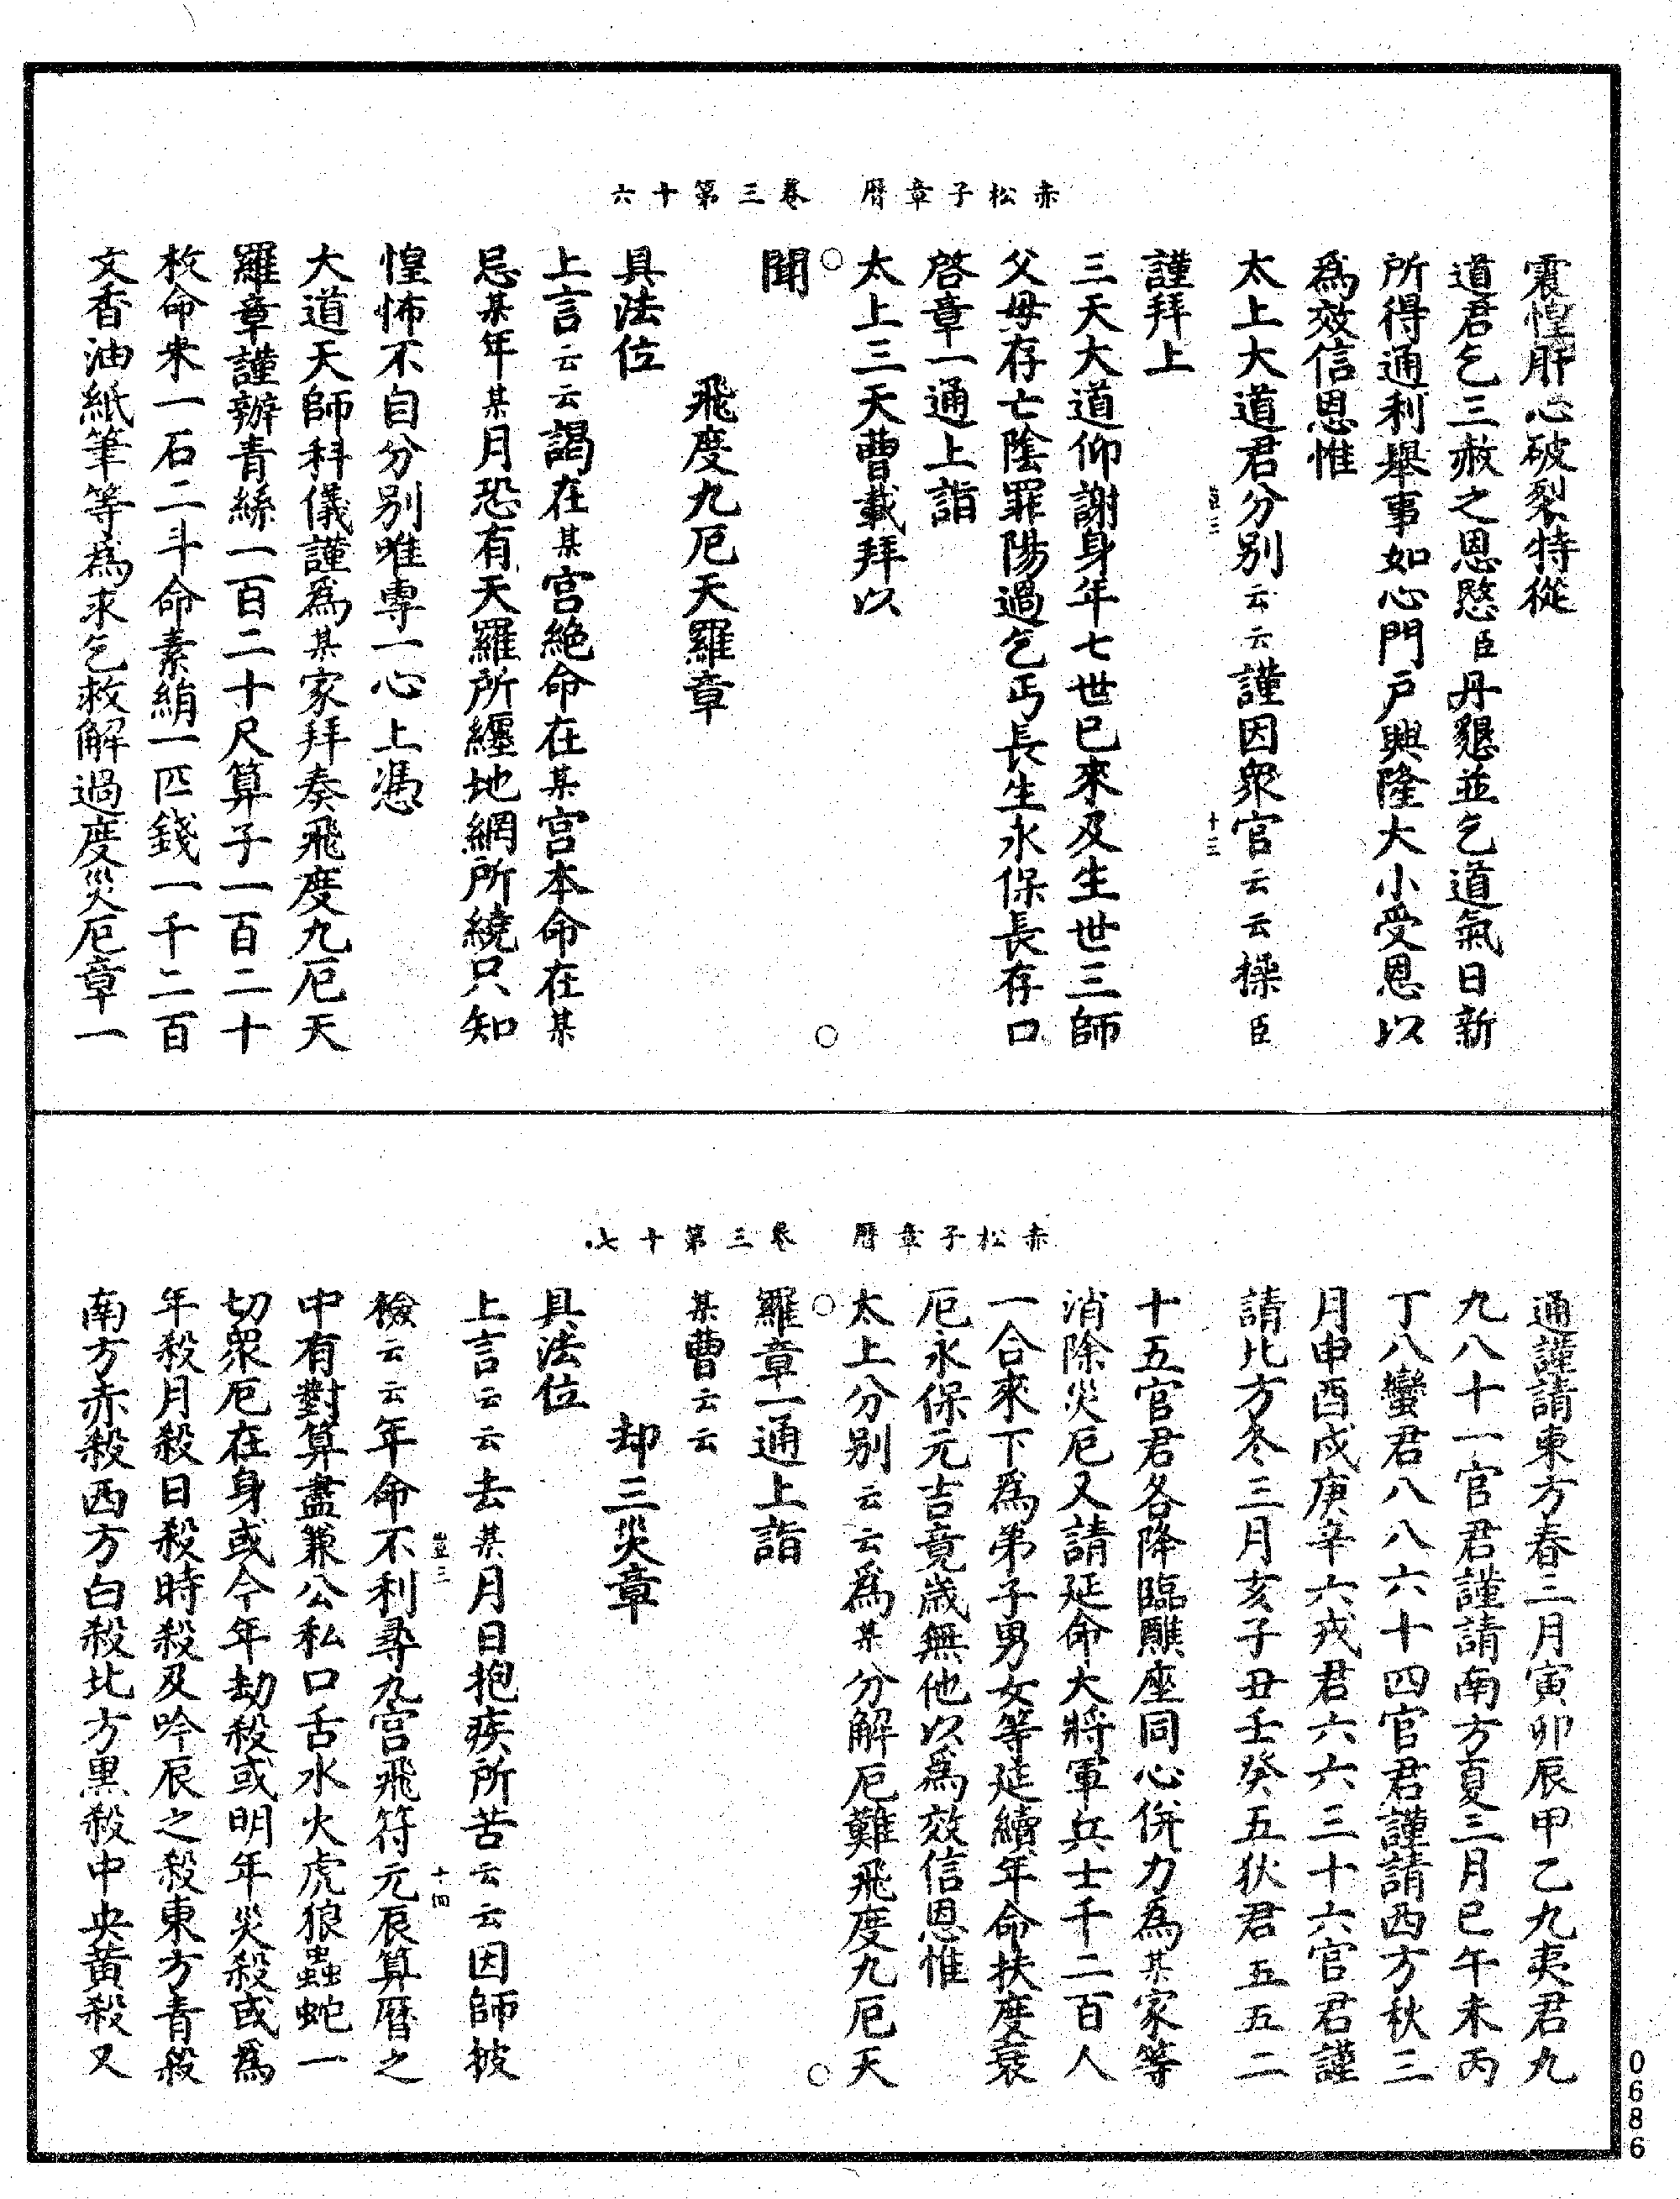 赤松子章曆　卷三第十六
震惶肝心破裂特從
道君乞三赦之恩愍臣丹懇並乞道氣日新
所得通利舉事如心門戶興隆大小受恩以
爲效信恩惟
太上大道君分別云云謹因衆官云云操臣
謹拜上
三天大道仰謝身年七世已來及生世三師
父母存亡陰罪陽過乞丐長生永保長存口
啓章一通上詣
太上三天曹載拜以
聞
飛度九厄天羅章
具法位
上言云云謁在某宮絕命在某宮本命在某
忌某年某月恐有天羅所纏地網所繞只知
惶怖不自分別唯專一心上憑
大道天師科儀謹爲某家拜奏飛度九厄天
羅章謹辦青絲一百二十尺算子一百二十
枚命米一石二斗命素絹一匹錢一千二百
文香油紙筆等爲求乞救解過度災厄章一
赤松子章曆　卷三第十七
通謹請東方春三月寅卯辰甲乙九夷君九
九八十一官君謹請南方夏三月巳午未丙
丁八蠻君八八六十四官君謹請西方秋三
月申酉戌庚辛六戎君六六三十六官君謹
請北方冬三月亥子丑壬癸五狄君五五二
十五官君各降臨醮座同心併力爲某家等
消除災厄又請延命大將軍兵士千二百人
一合來下爲弟子男女等延續年命扶度衰
厄永保元吉竟歲無他以爲效信恩惟
太上分別云云爲某分解厄難飛度九厄天
羅章一通上詣
某曹云云
却三災章
具法位
上言云云去某月日抱疾所苦云云因師披
檢云云年命不利尋九宮飛符元辰算曆之
中有對算盡兼公私口舌水火虎狼蟲蛇一
切衆厄在身或今年劫殺或明年災殺或爲
年殺月殺日殺時殺及吟辰之殺東方青殺
南方赤殺西方白殺北方黑殺中央黃殺又
0686